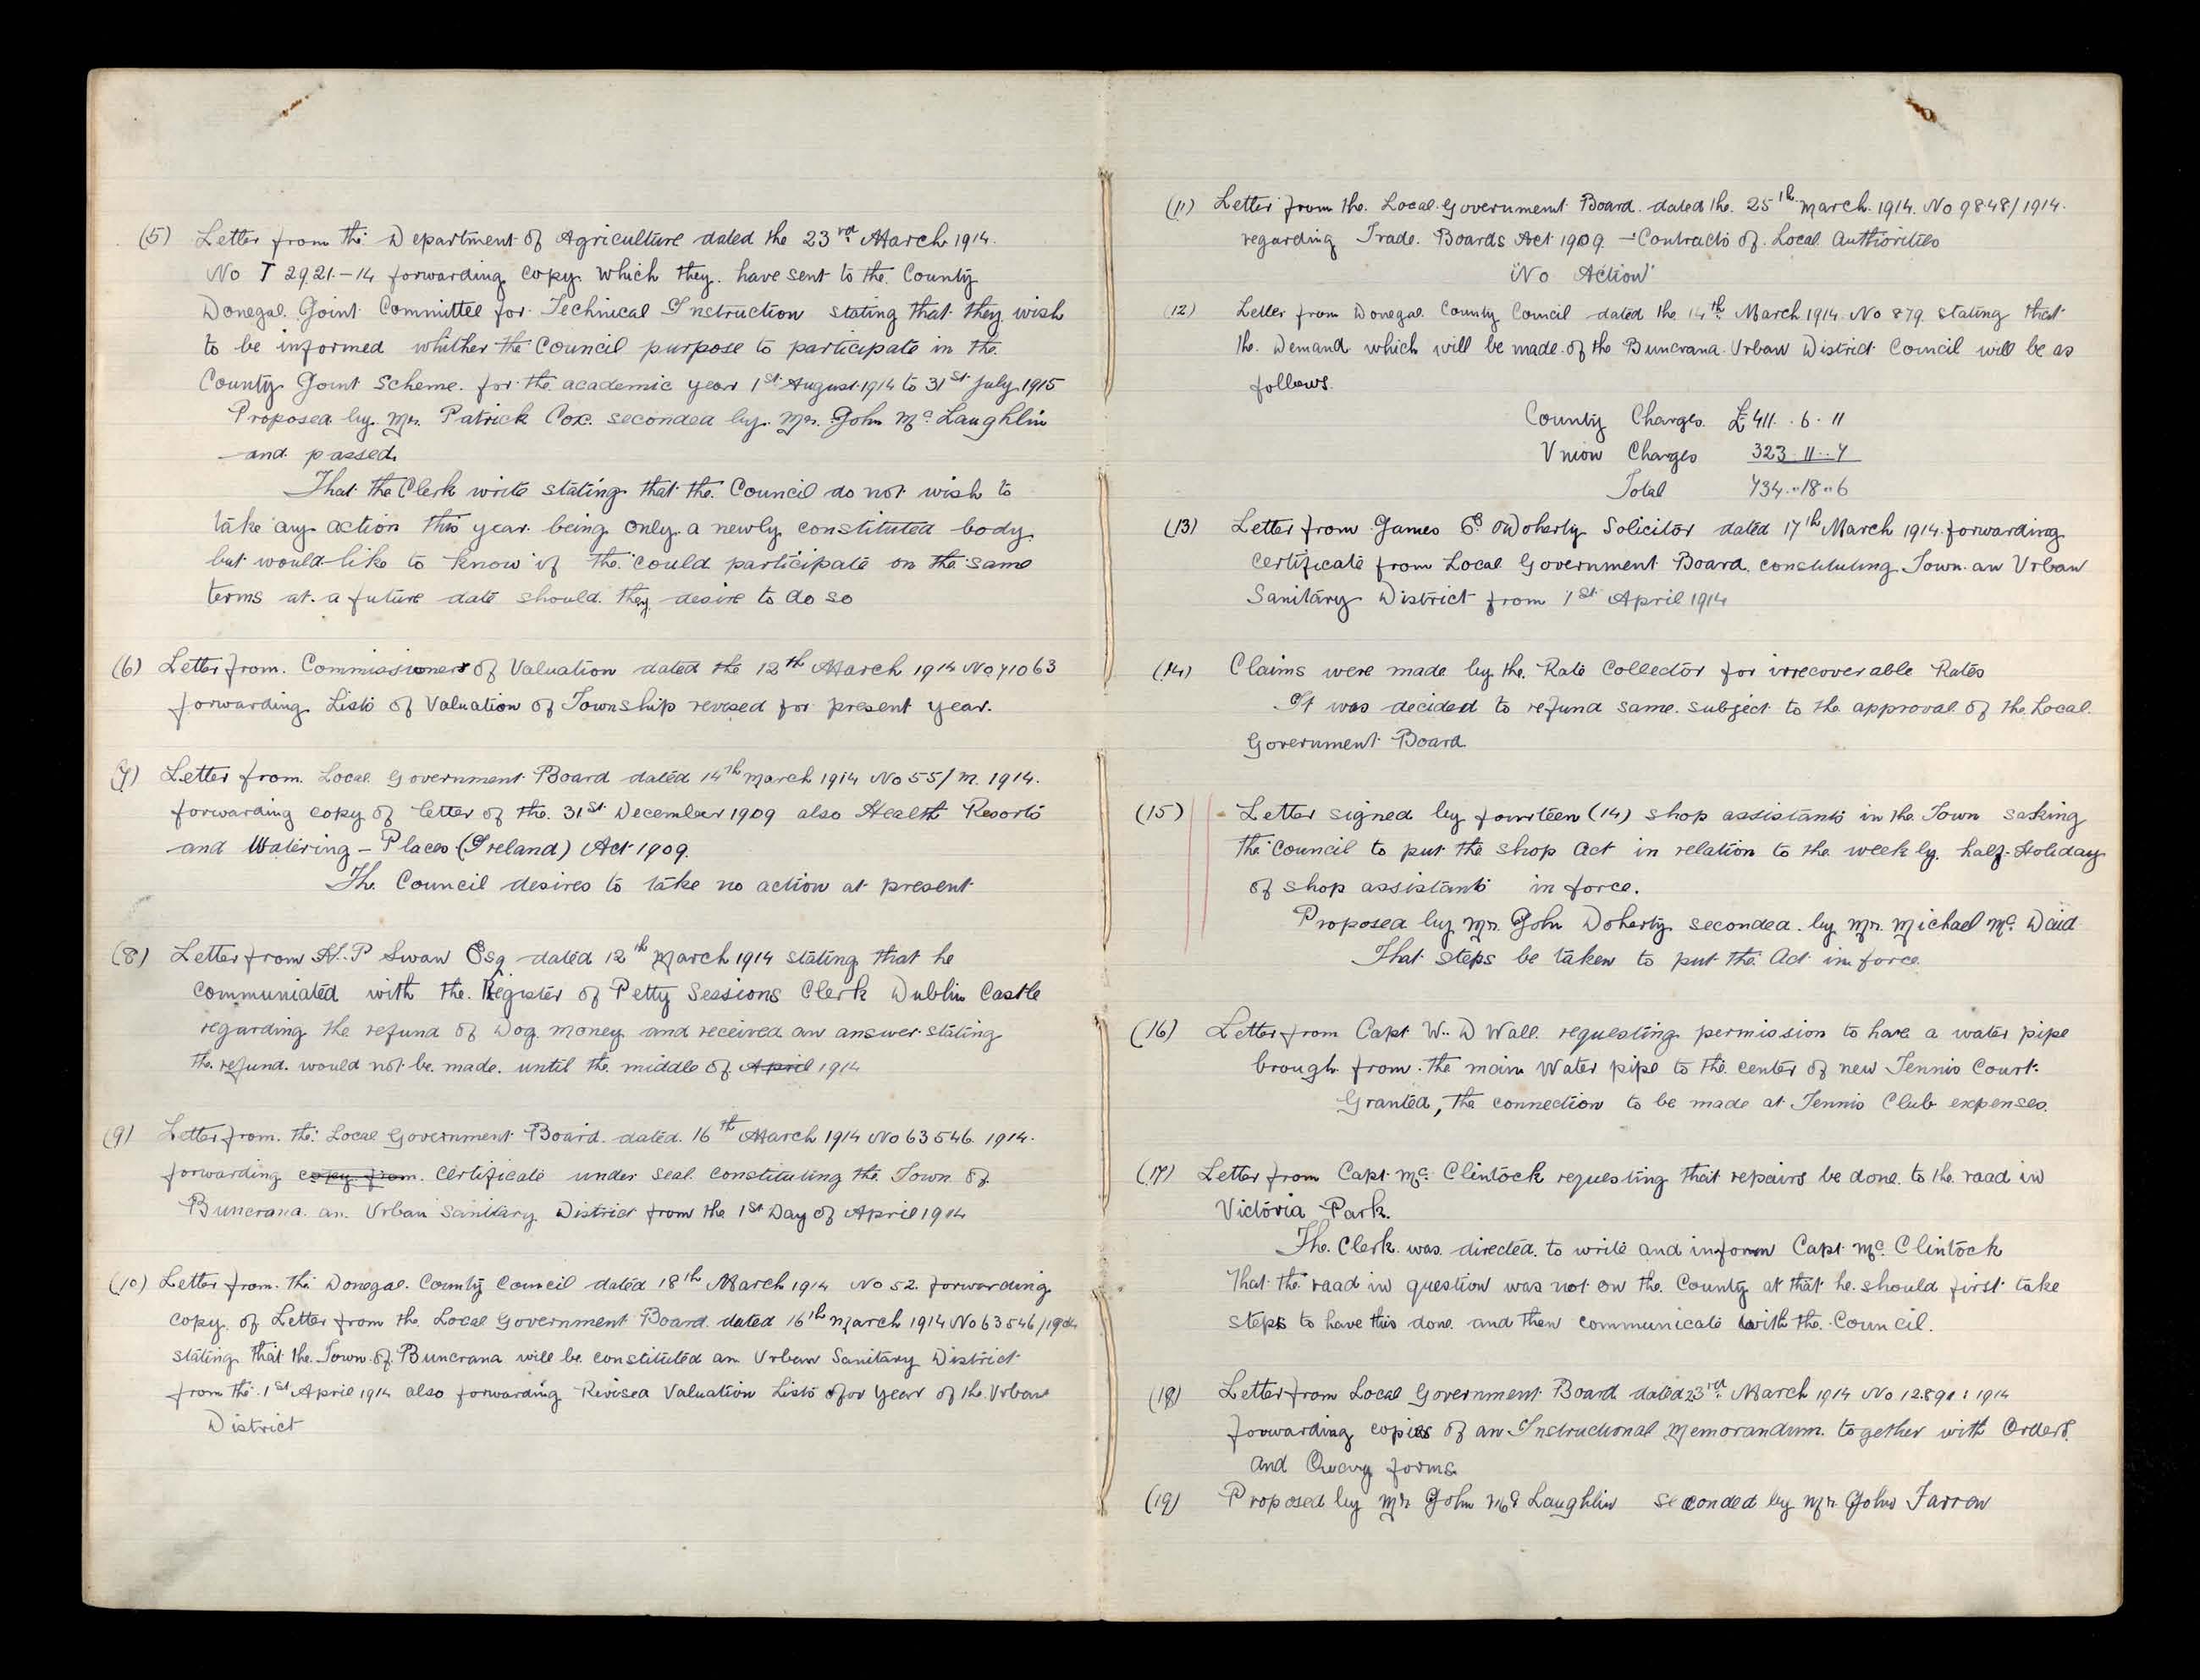 (5) Letter from the Department of Agriculture dated the 23rd March 1914.
No T 2921.-14 forwarding copy which they have sent to the County
Donegal Joint Committee for Technical Instruction stating that they wish
to be informed whither the Council purpose to participate in the
County Joint Scheme for the academic year 1st August 1914 to 31st July 1915
Proposed by Mr. Patrick Cox seconded by Mr. John McLaughlin
and passed.
That the Clerk write stating that the Council do not wish to
take any action this year being only a newly constituted body
but would like to know if the could participate on the same
terms at a future date should they desire to do so
(6) Letter from Commissioners of Valuation dated the 12th March 1914 No 71063
forwarding Lists of Valuation of Township revised for present year.
(7) Letter from Local Government Board dated 14th March 1914 No 55/M. 1914.
forwarding copy of letter of the 31st December 1909 also Health Resorts
and Watering-Places (Ireland) Act 1909.
The Council desires to take no action at present
(8) Letter from H. P Swan Esq dated 12th March 1914 stating that he
communiated with the Register of Petty Sessions Clerk Dublin Castle
regarding the refund of Dog money and received an answer stating
the refund would not be made until the middle of April 1914
(9) Letter from the Local Government Board dated 16th March 1914 No 63546 1914.
forwarding copy from certificate under seal constituting the Town of
Buncrana an Urban Sanitary District from the 1st Day of April 1914
(10) Letter from the Donegal County Council dated 18th March 1914 No 52. forwarding
copy of Letter from the Local Government Board dated 16th March 1914 No 63546/1914
stating that the Town of Buncrana will be constituted an Urban Sanitary District
from the 1st April 1914 also forwarding Revised Valuation Lists for Year of the Urban
District
(11) Letter from the Local Government Board dated the 25th March 1914. No 9848/1914.
regarding Trade Boards Act 1909 - Contracts of Local Authorities
"No Action"
(12) Letter from Donegal County Council dated the 14th March 1914 No 879 stating that
the Demand which will be made of the Buncrana Urban District Council will be as
follows.
County Charges £411. . 6 . 11
Union Charges 323. 11 . . 7
Total 734. " 18 " 6
(13) Letter from James E O'Doherty Solicitor dated 17th March 1914 forwarding
certificate from Local Government Board constituting Town an Urban
Sanitary District from 1st April 1914
(14) Claims were made by the Rate Collector for irrecoverable Rates
It was decided to refund same subject to the approval of the Local
Government Board
(15) Letter signed by fourteen (14) shop assistants in the Town asking
the Council to put the shop Act in relation to the weekly half-Holiday
of shop assistants in force.
Proposed by Mr. John Doherty seconded by Mr. Michael McDaid
That steps be taken to put the Act in force
(16) Letter from Capt W. D Wall requesting permission to have a water pipe
brough from the main Water pipe to the center of new Tennis Court.
Granted, the connection to be made at Tennis Club expenses.
(17) Letter from Capt McClintock requesting that repairs be done to the raad in
Victoria Park.
The Clerk was directed to write and inform Capt McClintock
That the raad in question was not on the County at that he should first take
steps to have this done and then communicate with the Council.
(18) Letter from Local Government Board dated 23rd March 1914 No 12.891: 1914
forwarding copies of an Instructional Memorandum together with Orders
and Query forms
(19) Proposed by Mr John McLaughlin seconded by Mr John Farren